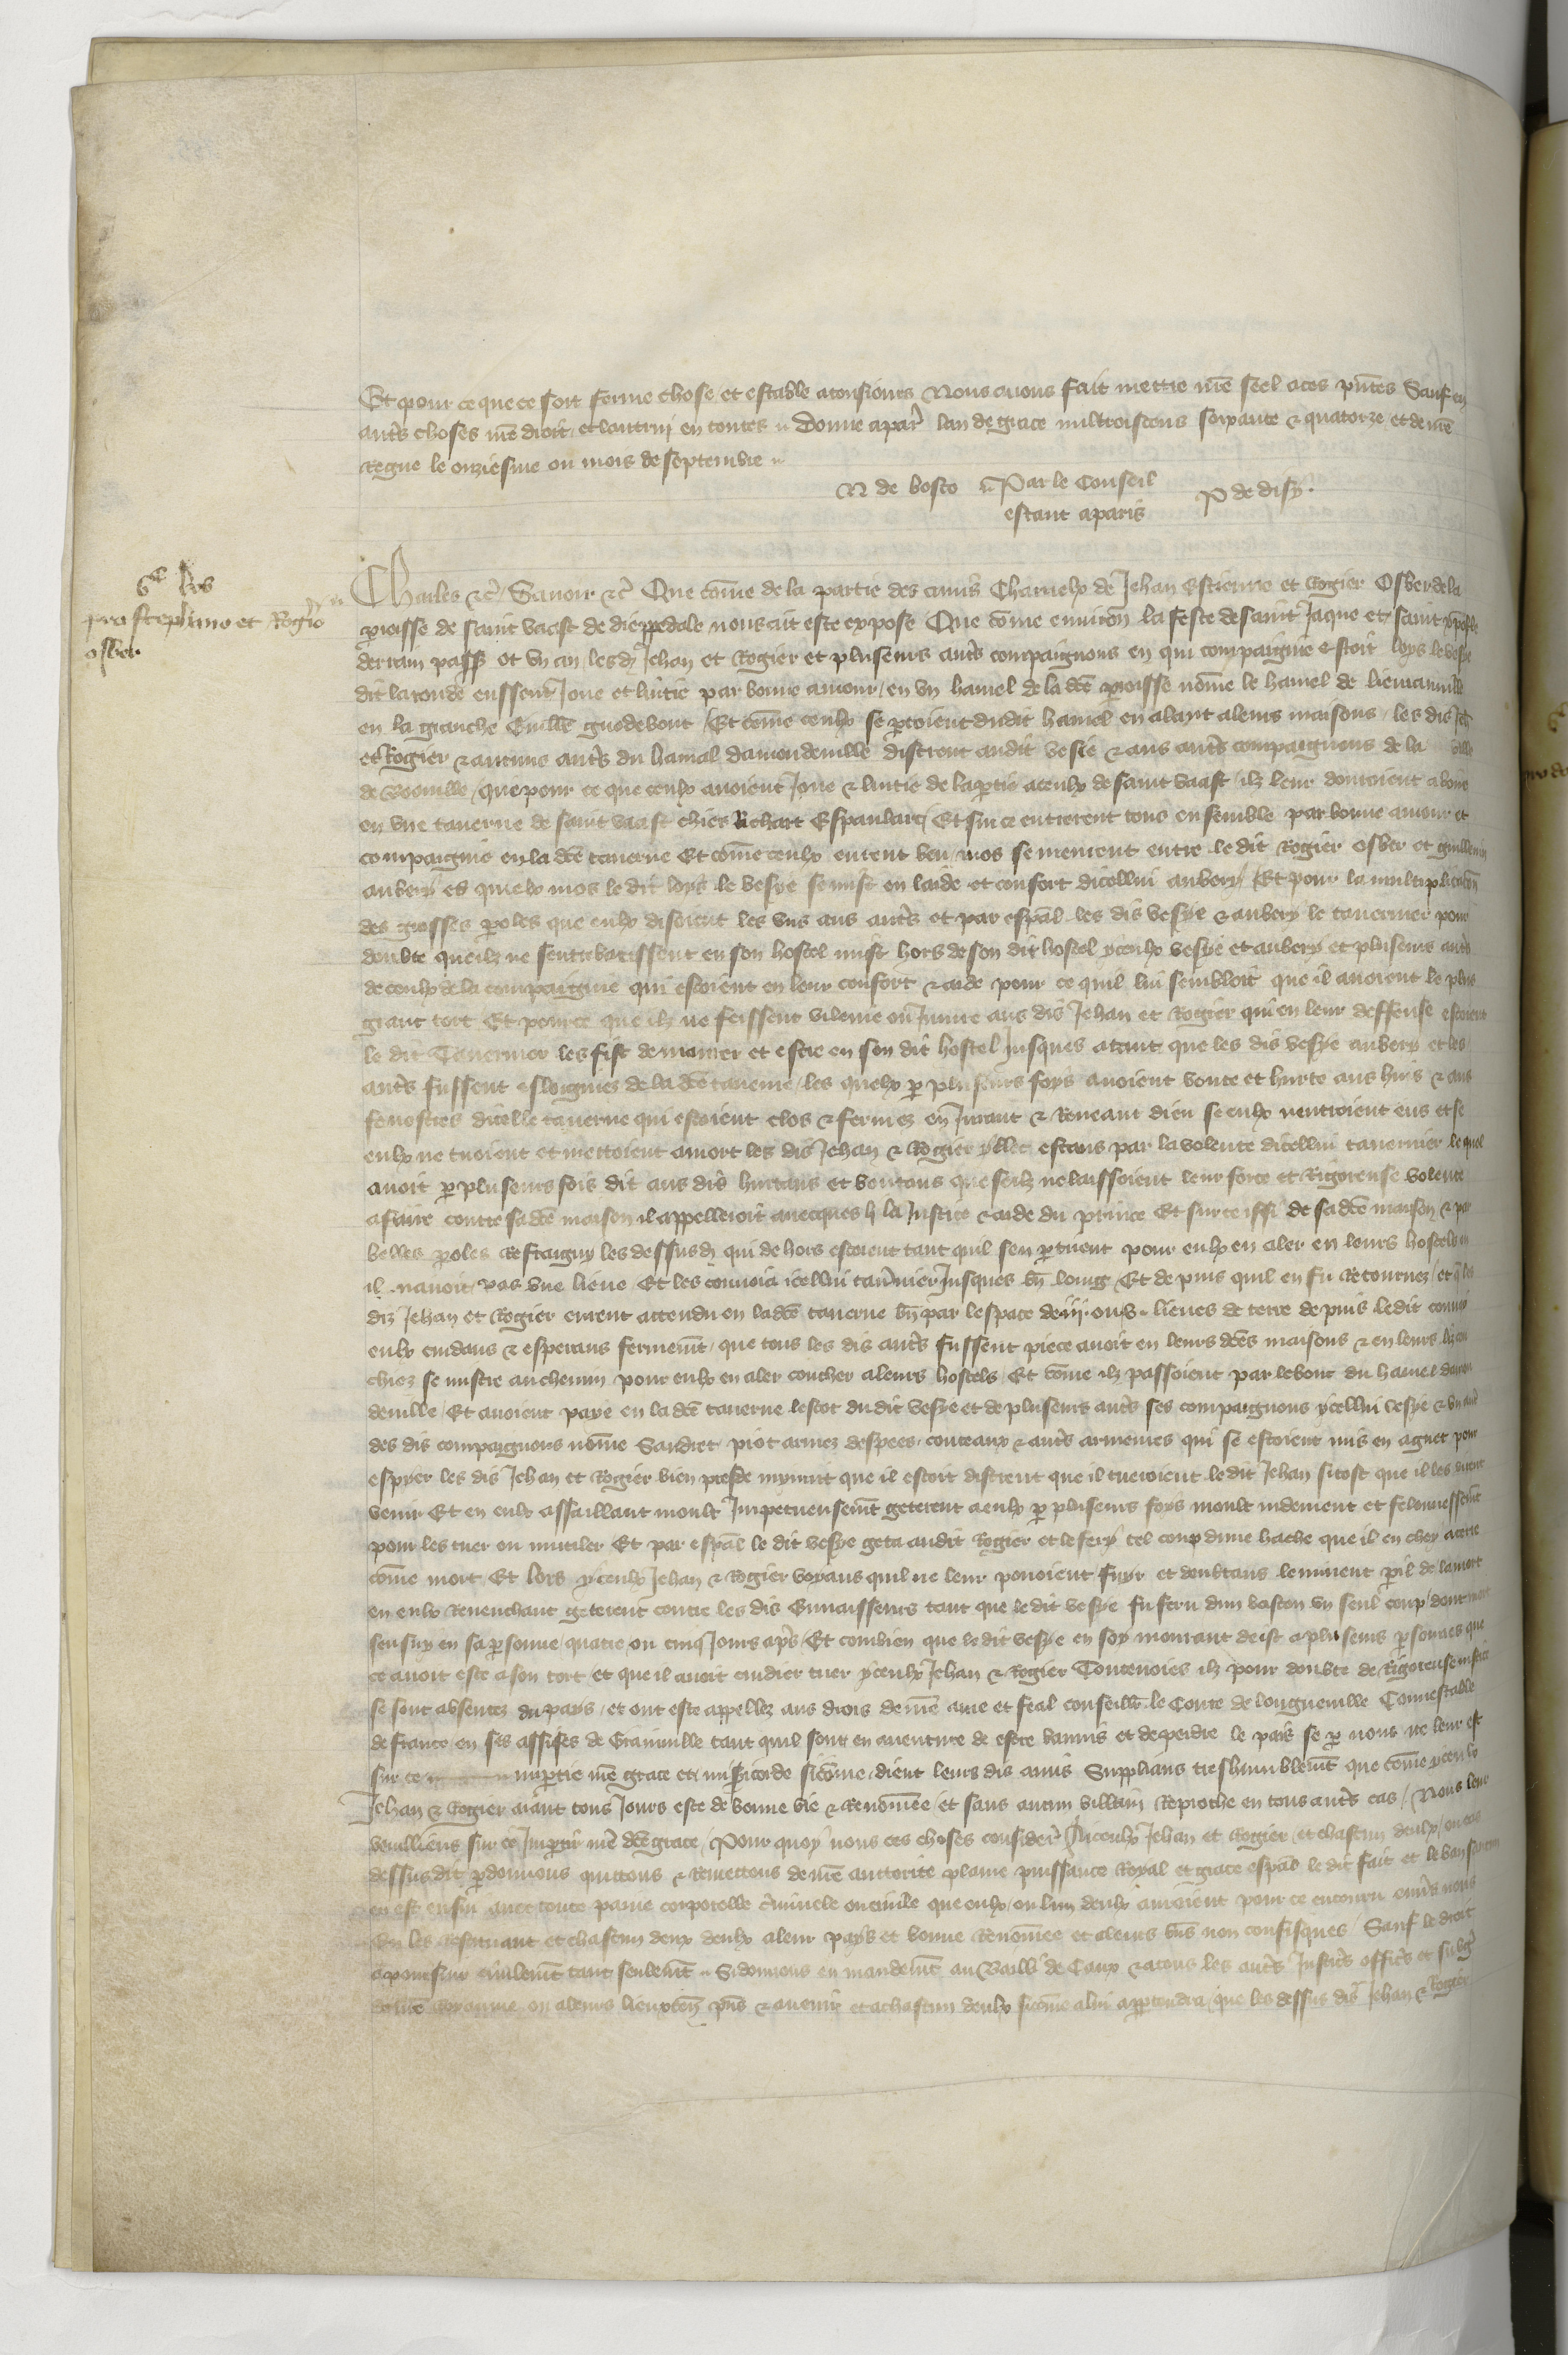 Et pour ce que ce soit ferme chose et estable a tousjours Nous avons fait mettre nr̄e seel a ces pn̄tes Sauf en
autrēs choses nr̄e droit et lautruy en toutes Donne a par̄ lan de grace mil trois cens soixante & quatorze et de nr̄e
Regne le onziesme ou mois de septembre
N de bosco Par le Conseil P de disy.
estant a paris
lrēs
pro stephano et Rogero
osber
Charles &c̄ Savoir &c̄ Que com̄e de la partie des amis Charnelx de Jehan Estienne et Rogier Osber de la
p̄roisse de saint vaast de dieppedale nous ait este expose Que com̄e environ la feste de saint Jaque et saint xp̄ofle
derrain passe ot un an les dis Jehan et Rogier et pluseurs autr̄s compaignons en qui compaignie estoit loys le vesye
dit la ronde eussent Joue et luitie par bonne amour en un hamel de la dc̄e p̄roisse nom̄e le hamel de
en la granche Guill̄e guodebout Et com̄e ceulx se p̄toient dudit hamel en alant a leurs maisons les dis Jeh̄
et Rogier & aucuns autr̄s du hamel damondeville distrent audit vesie & aus autr̄s compaignons de la ville
de que pour ce que ceulx avoient Joue & luitie de la p̄tie a ceulx de saint vaast ilz leur donroient a boire
en une taverne de saint vaast chiez Richart Espaulart Et sur ce entrerent tous ensemble par bonne amour et
compaignie en la dc̄e taverne Et com̄e ceulx eurent beu mos se meurent entre le dit Rogier Osber et guillemin
aubery es quielx mos le dit loys le vesye se mist en laide et confort dicellui aubery Et pour la multiplicacōn
des grosses p̄oles que eulx disoient les uns aus autr̄s et par esp̄al les dis vesye & aubery le tavernier pour
doubte que ilz ne sentrebatissent en son hostel mist hors de son dit hostel yceulx vesye et aubery et pluseurs autr̄s
de ceulx de la compaignie qui estoient en leur confort & aide pour ce quil lui sembloit que il avoient le plus
grant tort Et pour ce que ilz ne feissent vilenie ou Injure aus dis Jehan et Rogier qui en leur deffense estoient
le dit Tavernier les fist demourer et estre en son dit hostel Jusques a tant que les dis vesye aubery et les
autr̄s fussent esloignez de la dc̄e taverne les quelx p̄ pluseurs foys avoient boute et hurte aus huis & aus
fenestres dicelle taverne qui estoient clos & fermez en Jurant & Reneant dieu se eulx nentroient ens et se
eulx ne tuoient et mettoient a mort les dis Jehan & Rogier yllec estans par la volente dicellui tavernier le quel
avoit p̄ pluseurs fois dit aus dis hurtans et boutans que seilz ne laissoient leur force et Rigoreuse volente
a faire contre sa dc̄e maison il appelleroit avecques li la Justice & aide du prince Et sur ce issi de sa dc̄e maison & par
belles p̄oles Restraigny les dessus dis qui dehors estoient tant quil sen p̄tirent pour eulx en aler en leurs hostels ou
il navoit pas une lieue Et les convoia icellui tav̄nier Jusques bn̄ loing Et depuis quil en fu Retournez et q̄ les
diz Jehan et Rogier eurent attendu en la dc̄e taverne bn̄ par lespace de iij. ou lieues de terre depuis le dit convoy
eulx cuidans & esperans fermem̄t que tous les dis autr̄s fussent piece avoit en leurs dc̄es maisons & en leurs
chiez se mistre au chemin pour eulx en aler coucher a leurs hostels Et com̄e ilz passoient par le bout du hamel damon
deville Et avoient paye en la dc̄e taverne lescot du dit vesye et de pluseurs autr̄s ses compaignons ycellui vesye & un autr̄
des dis compaignons nom̄e Saudret piot armez despees couteaux & autr̄s armeures qui se estoient mis en aguet pour
espyer les dis Jehan et Rogier bien pres de mynuit que il estoit distrent que il tueroient le dit Jehan si tost que il les virent
venir Et en eulx assaillant moult Impetueusem̄t geterent a eulx p̄ pluseurs foys moult rudement et felonnessem̄t
pour les tuer ou mutiler Et par esp̄al le dit vesye geta au dit Rogier et le fery tel coup dune hache que il en chey a terre
com̄e mort Et lors yceulx Jehan & Rogier voyans quil ne leur povoient fuyr et doubtans leminent p̄il de la mort
en eulx Revenchant geterent contre les dis Envaisseurs tant que le dit vesye fu feru dun baston un seul coup dont mort
sensuy en sa p̄sonne quatre ou cinq Jours ap̄s Et combien que le dit vesye en soy mourant deist a pluseurs p̄sonnes que
ce avoit este a son tort et que il avoit cuidier tuer yceulx Jehan & Rogier Toutevoies ilz pour doubte de Rigoreuse justice
se sont absentez du pays et ont este appellez aus drois de nr̄e ame et feal conseill̄r le Conte de longueville Connestable
de france en ses assises de Grainville tant quil sont en aventure de estre bannis et de perdre le pais se p̄ nous ne leur est
sur ce imp̄rtie nr̄e grace et miśicorde si com̄e dient leurs dis amis Suppliāns tres humblem̄t que com̄e yceulx
Jehan & Rogier aiant tous Jours este de bonne vie & Renom̄ee et sans aucun villain Reproche en tous autr̄s cas Nous leur
veuillions sur ce Imp̄tir nr̄e dc̄e grace Pour quoy nous ces choses consider̄ A yceulx Jehan et Rogier et chascun deulx ou cas
dessus dit p̄donnons quittons & Remettons de nr̄e auctorite plaine puissance Royal et grace esp̄al le dit fait et le ban
en est ensui avec toute paine corporelle c̄minele ou civile que eulx ou lun deulx avroient pour ce encouru env̄s nous
En les Restituant et chascun deulx a leur pays et bonne Renom̄ee et a leurs bn̄s non confisques Sauf le droit
a poursuir civilem̄t tant seulem̄t Si donnons en mandem̄t au Bailli de Caux & a tous les autr̄s Justic̄rs offic̄rs et subḡ
de nr̄e Royaume ou a leurs lieuxten̄ pn̄s & avenir et a chascun deulx si com̄e a lui app̄tendra que les dessus dis Jehan & Rogier